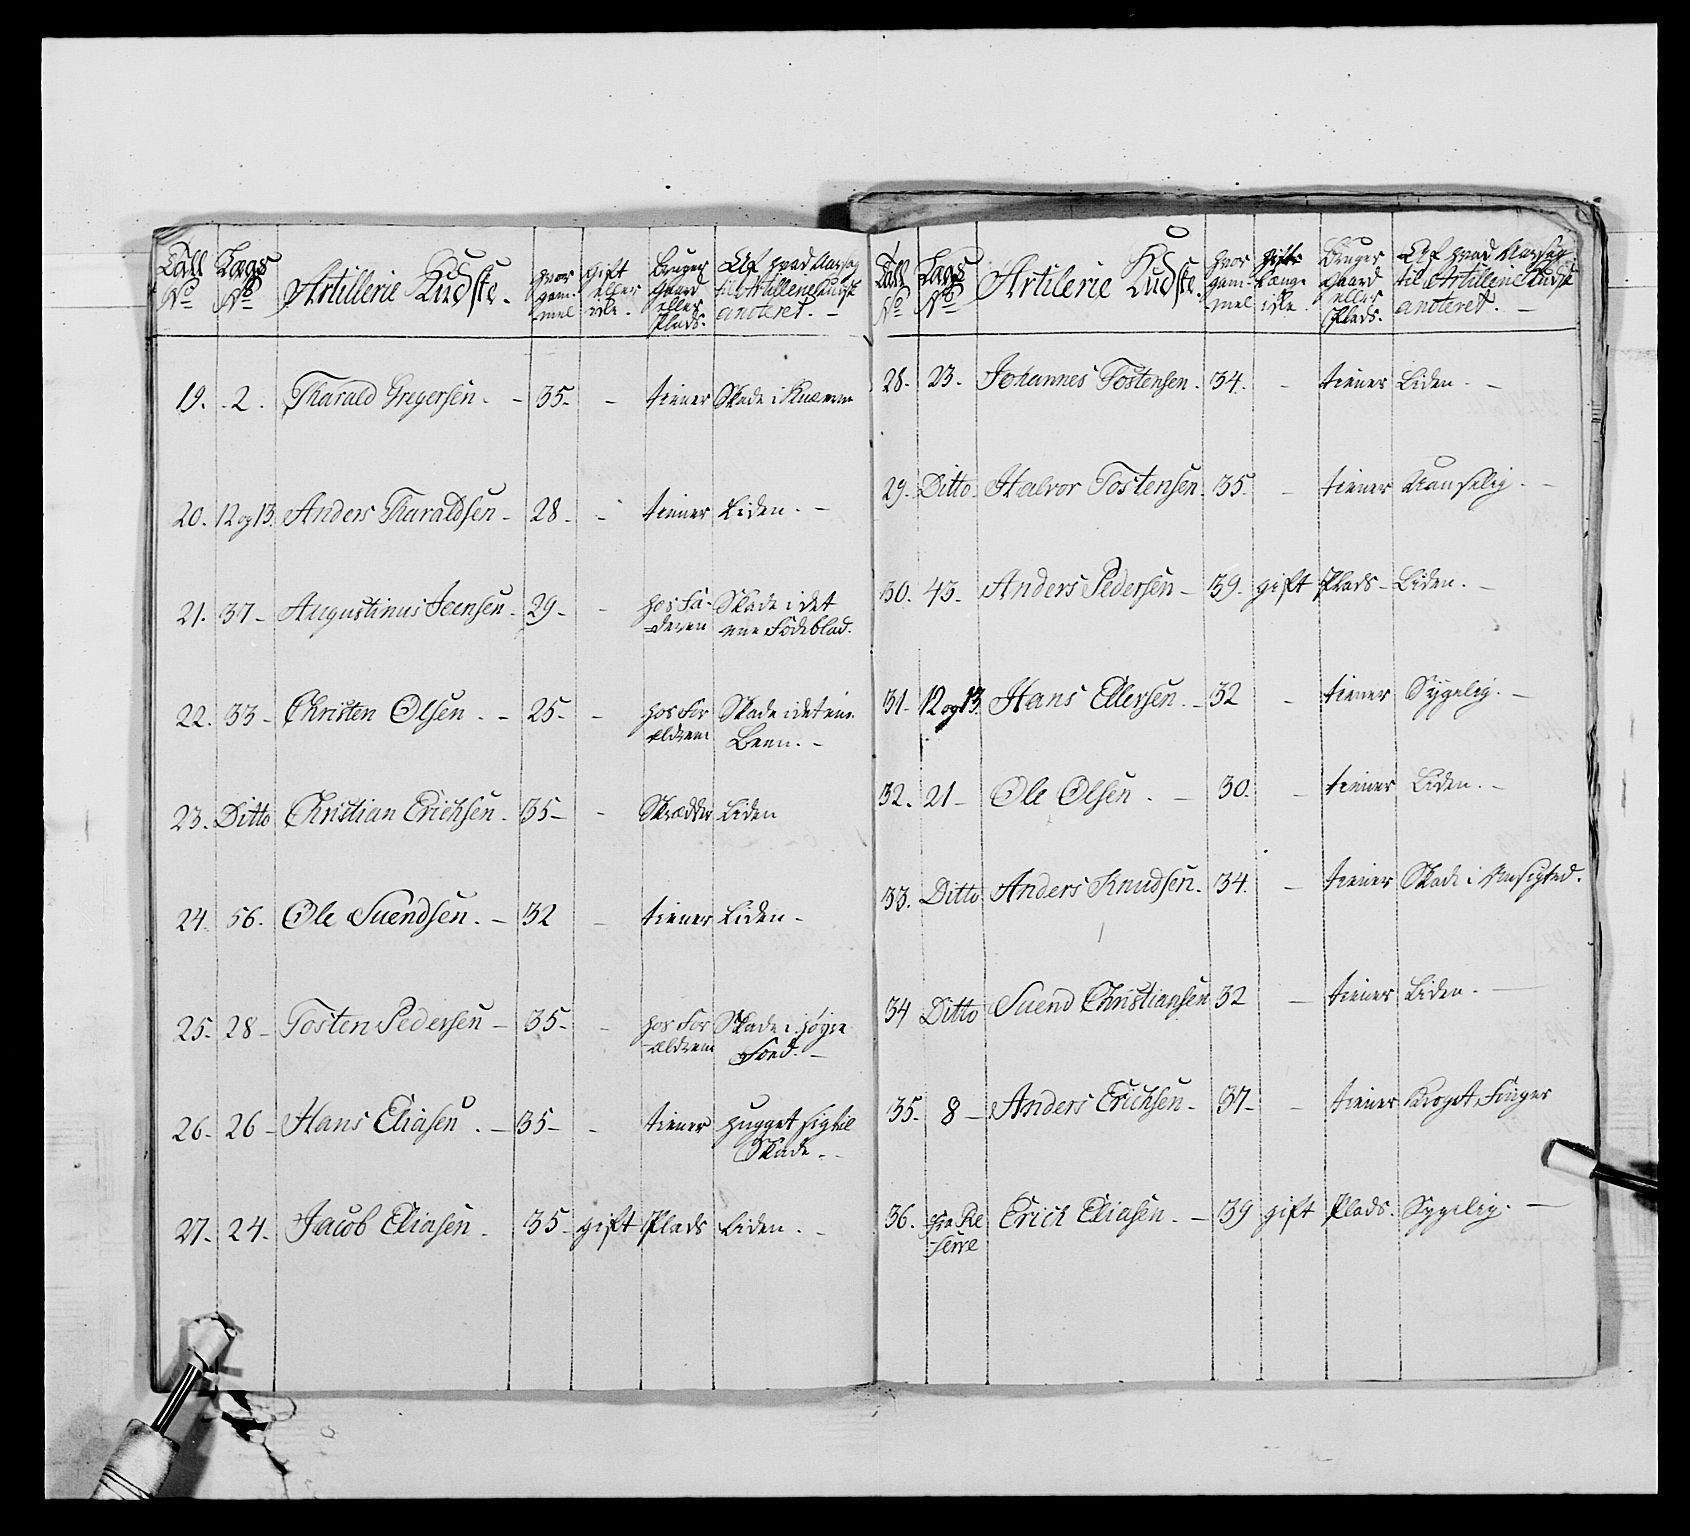 Tall No | Lægs No | Artillerie Kudske. | hvor gam- mel | gift eller icke. | Bruger Gaard eller Plads. | Af hvad Aarsag til Artillerie Kudsk anoteret. –
19. | 2. | Tharald Gregersen. – | 35. | – | tiener | Skade i Knæerne
20. | 12 og 13. | Anders Tharaldsen – | 28. | – | tiener | Liden. –
21. | 37 – | Augustinus Jensen. | 29 – | – | hos Fa- deren | Skade i det ene Födeblad.
22. | 33 – | Christen Olsen. – | 25 – | – | hos For ældrene | Skade i det ene Been. –
23. | Ditto | Christian Erichsen. | 35 – | – | Skrædder | Liden
24. | 56. | Ole Suendsen. – | 32 | – | tiener | Liden –
25. | 28 – | Tosten Pedersen – | 35 – | – | hos For -ældrene | Skade i høgre Foed. –
26. | 26 – | Hans Eliasen. – | 35 – | – | tiener | hugget sig til Skade. –
27. | 24. | Jacob Eliasen. | 35 – | gift | Plads | Liden. –
Tall No | Lægs No | Artilerie Kudske. | hvor gam- mel | gift icke. | Bruger Gaard eller Plads. | Af hvad Aarsag til Artillerie Kudsk anoteret. –
28. | 23. | Johannes Tostensen. | 34. | – | tiener | Liden. –
29. | Ditto. | Halvor Tostensen. | 35. | – | tiener | Uanselig. –
30. | 43. | Anders Pedersen – | 39. | gift | Plads – | Liden. –
31. | 12 og 13. | Hans Ellersen. – | 32 | – | tiener | Sygelig. –
32. | 21 – | Ole Olsen. – | 30 | – | tiener | Liden. –
33. | Ditto | Anders Knudsen. | 34. | – | tiener | Skade i Ansigted.
34 | Ditto | Suend Christiansen | 32 | – | tiener | Liden. –
35. | 8 – | Anders Erichsen – | 37 – | – | tiener | Kroget Finger
36. | fra Re -serve | Erich Eliasen. – | 39 | gift | Plads. | Sygelig. –